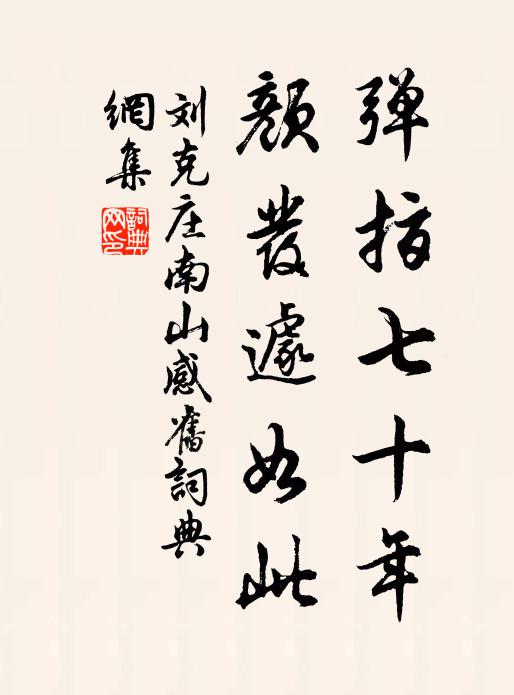 弹指七十年
颜发遽如此
刘克庄南山感旧詞典
網集
詞典网印